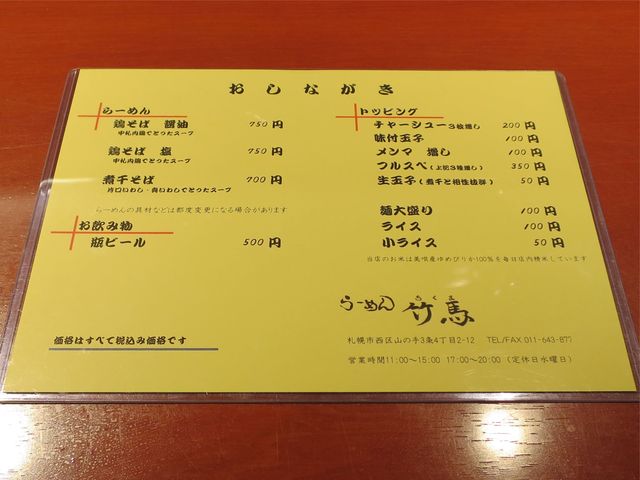 おしながき
らーめん
鶏そば 醤油 750 円
中札内鶏でとったスープ
鶏そば 塩 750 円
中札内鶏でとったスープ
煮干そば 700 円
片口いわし・真いわしでとったスープ
らーめんの具材などは都度変更になる場合があります
お飲み物
瓶ビール 500 円
価格はすべて税込み価格です
トッピング
チャーシュー3枚増し 200 円
味付玉子 100 円
メンマ 増し 100 円
フルスペ(上記3種増し) 350 円
生玉子(煮干と相性抜群) 50 円
麺大盛り 100 円
ライス 100 円
小ライス 50 円
当店のお米は美唄産ゆめぴりか100%を毎日店内精米しています
らーめん 竹馬
札幌市西区山の手3条4丁目2-12 TEL/FAX 011-643-877
営業時間11:00~15:00 17:00~20:00 (定休日水曜日)